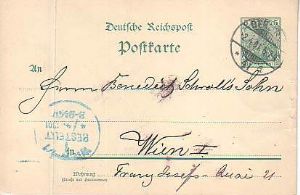 Deutsche Reichspost
Postkarte
An
Herrn Benedict Schroll's Sohn
BESTELLT
in
Wien I
Franz Josefs-Quai 21
Wohnung
(Straße und Hausnummer)